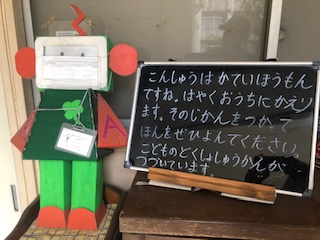 こんしゅうは かていほうもん
ですね。はやくおうちにかえり
ます。そのじかんをつかって
ほんをぜひよんでください。
こどものどくしょしゅうかんが
つづいています。
A